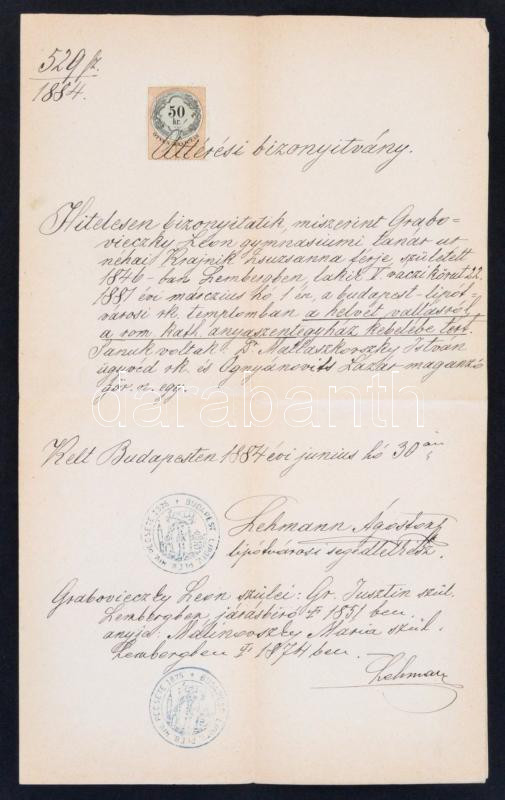 529 sz.
1884.
50
kr.
Áttérési bizonyítvány.
Hitelesen bizonyittatik, miszerint Grabo-
vieczky Leon gymnasiumi tanár ur
néhai Krajnik Zsuzsanna férje, született
1846-ban Lembergben, lakik V. váczi körut 22.
1881 évi márczius hó 1 én, a budapest-lipót-
városi rk. templomban a helvét vallásról
a róm. kath. anyaszentegyház kebelébe tért.
Tanuk voltak: Dr. Mattaszkovszky István
ügyvéd rk. és Ognyánovits Lázár magánzó
gör. n. egy.
Kelt Budapesten 1884 évi junius hó 30 án
Lehmann Ágoston
lipótvárosi segédlelkész.
Grabovieczky Leon szülei: Gr. Jusztin szül.
Lembergben járásbíró † 1851 ben.
anyja: Malinovszky Maria szül.
Lembergben † 1874 ben.
Lehmann
darabanth